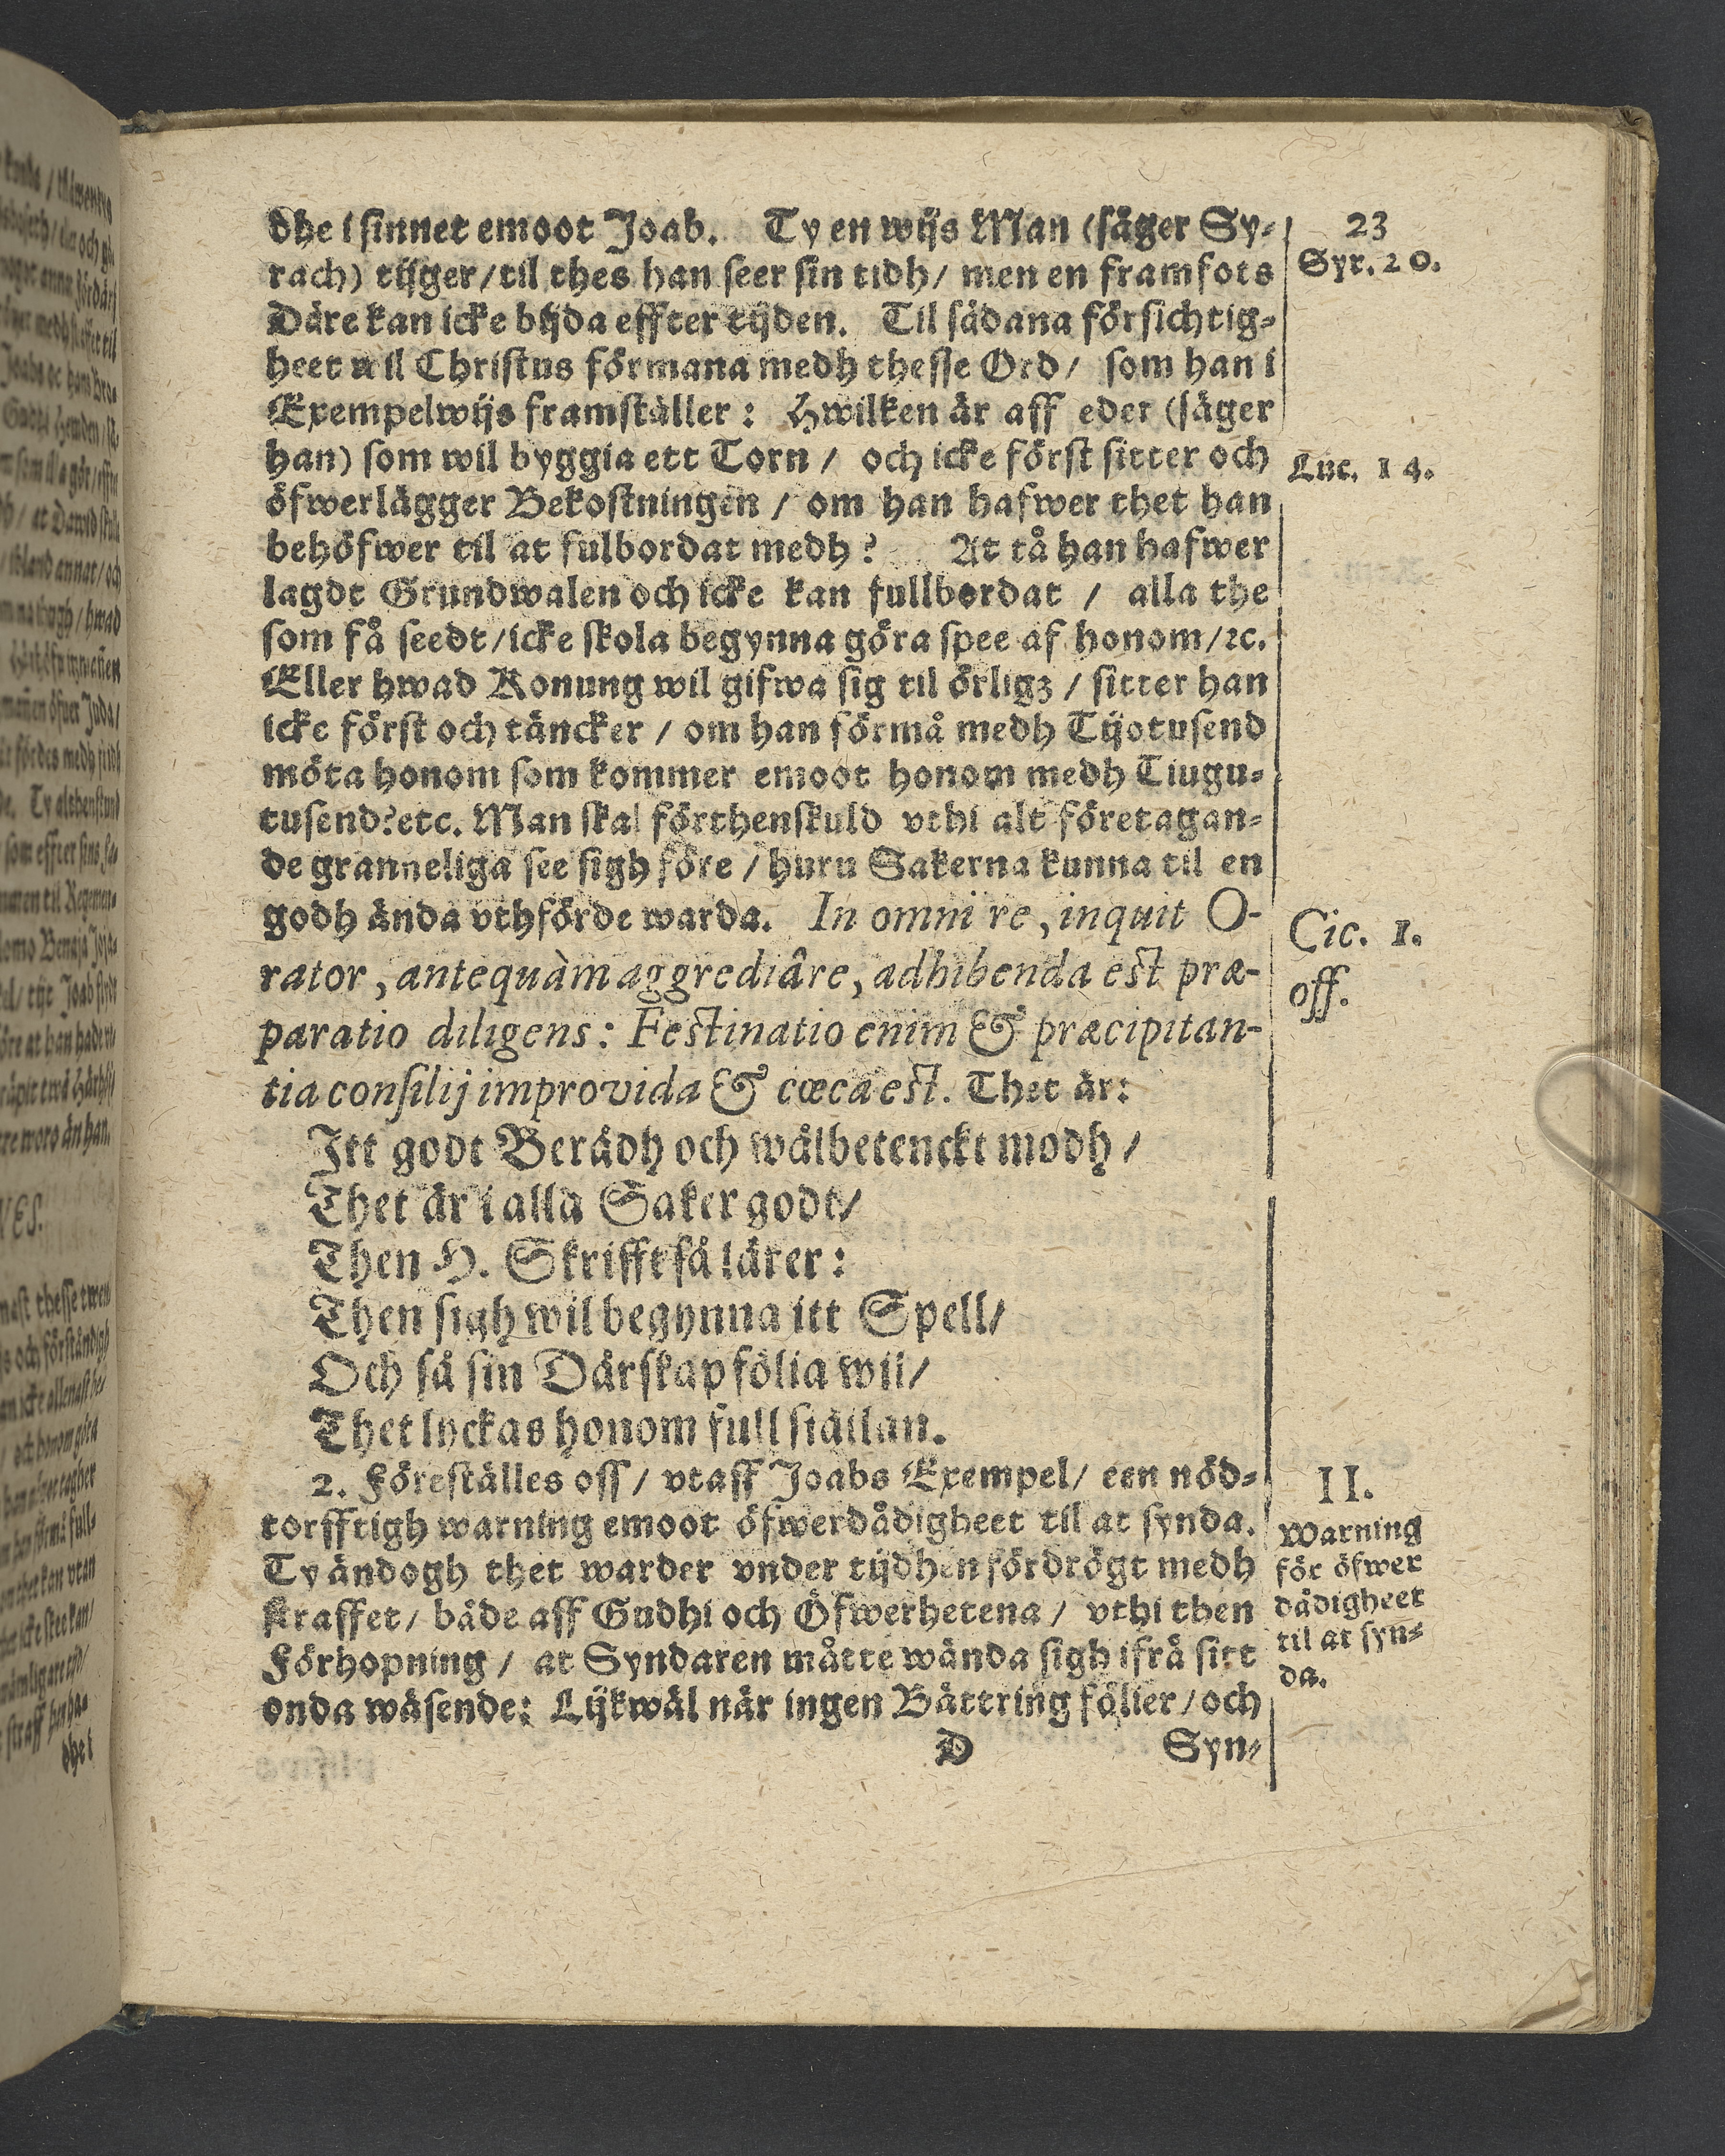 23
dhe i sinnet emoot Joab. Ty en wijs Man (säger Sy-
Syr. 20.
rach) tijger/til thes han seer sin tidh/ men en framfots
Däre kan icke bijda effter tijden. Til sådana försichtig-
heet wil Christus förmana medh thesse Ord/ som han i
Exempelwijs framställer: Hwilken är aff eder (säger
han) som wil byggia ett Torn / och icke först sitter och
Luc. 14.
öfwerlägger Bekostningen / om han hafwer thet han
behöfwer til at fulbordat medh? At tå han hafwer
lagdt Grundwalen och icke kan fullbordat / alla the
som få seedt/icke skola begynna göra spee af honom/ꝛc.
Eller hwad Konung wil gifwa sig til örligz / sitter han
icke först och täncker / om han förmå medh Tijotusend
möta honom som kommer emoot honom medh Tiugu-
tusend?etc. Man skal förthenskuld vthi alt företagan-
de granneliga see sigh före / huru Sakerna kunna til en
godh ända vthförde warda. In omni re, inquit O-
Cic. 1.
rator, antequàm aggrediâre, adhibenda est præ-
off.
paratio diligens: Festinatio enim & præcipitan-
tia consilij improvida & cœca est. Thet är:
Itt godt Berådh och wälbetenckt modh /
Thet är i alla Saker godt/
Then H. Skrifft så lärer:
Then sigh wil begynna itt Spell/
Och så sin Dårskap fölia wil/
Thet lyckas honom full siällan.
2. Föreställes oss/ vtaff Joabs Exempel/ een nöd-
II.
torfftigh warning emoot öfwerdådigheet til at synda.
Warning
Ty ändogh thet warder vnder tijdhen fördrögt medh
för öfwer
straffet/ både aff Gudhi och Öfwerhetena / vthi then
dådigheet
Förhopning / at Syndaren måtte wända sigh ifrå sitt
til at syn-
onda wäsende: Lijkwäl när ingen Bättring fölier/och
da.
D Syn-